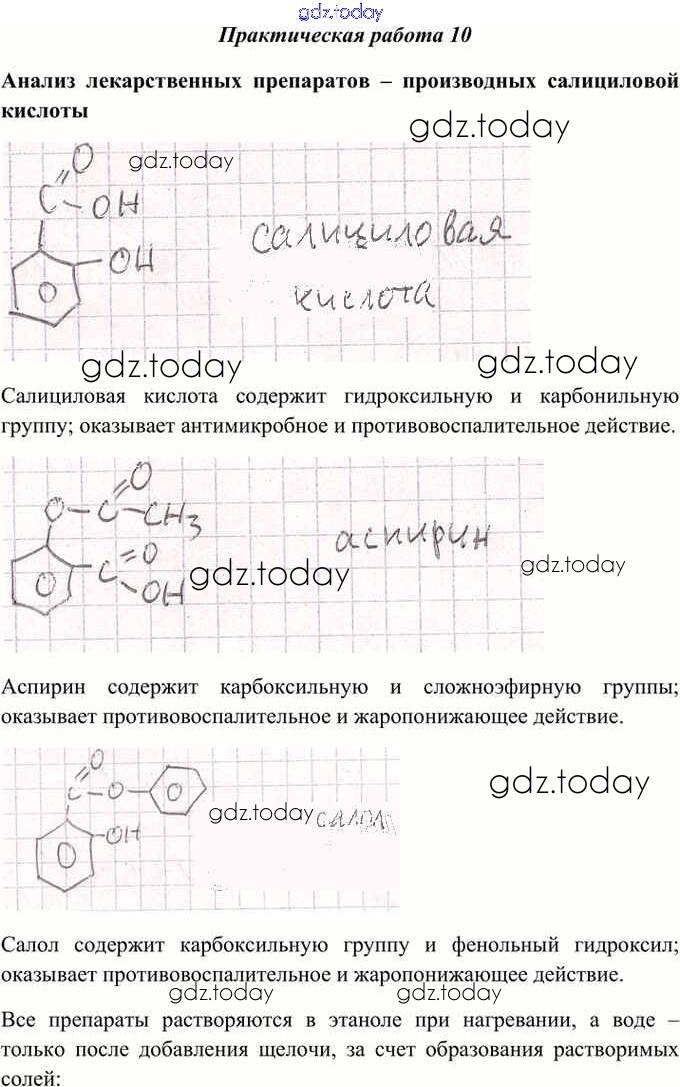 gdz.today
Практическая работа 10
Анализ лекарственных препаратов – производных салициловой
кислоты
gdz.today
gdz.today
O
C
OH
OH
O
салициловая
кислота
gdz.today
gdz.today
Салициловая кислота содержит гидроксильную и карбонильную
группу; оказывает антимикробное и противовоспалительное действие.
O
O – C – CH3
O
C
OH
O
аспирин
gdz.today
gdz.today
Аспирин содержит карбоксильную и сложноэфирную группы;
оказывает противовоспалительное и жаропонижающее действие.
O
C – O –
O
OH
O
gdz.today
gdz.today
салол
Салол содержит карбоксильную группу и фенольный гидроксил;
оказывает противовоспалительное и жаропонижающее действие.
gdz.today
gdz.today
Все препараты растворяются в этаноле при нагревании, а воде –
только после добавления щелочи, за счет образования растворимых
солей: